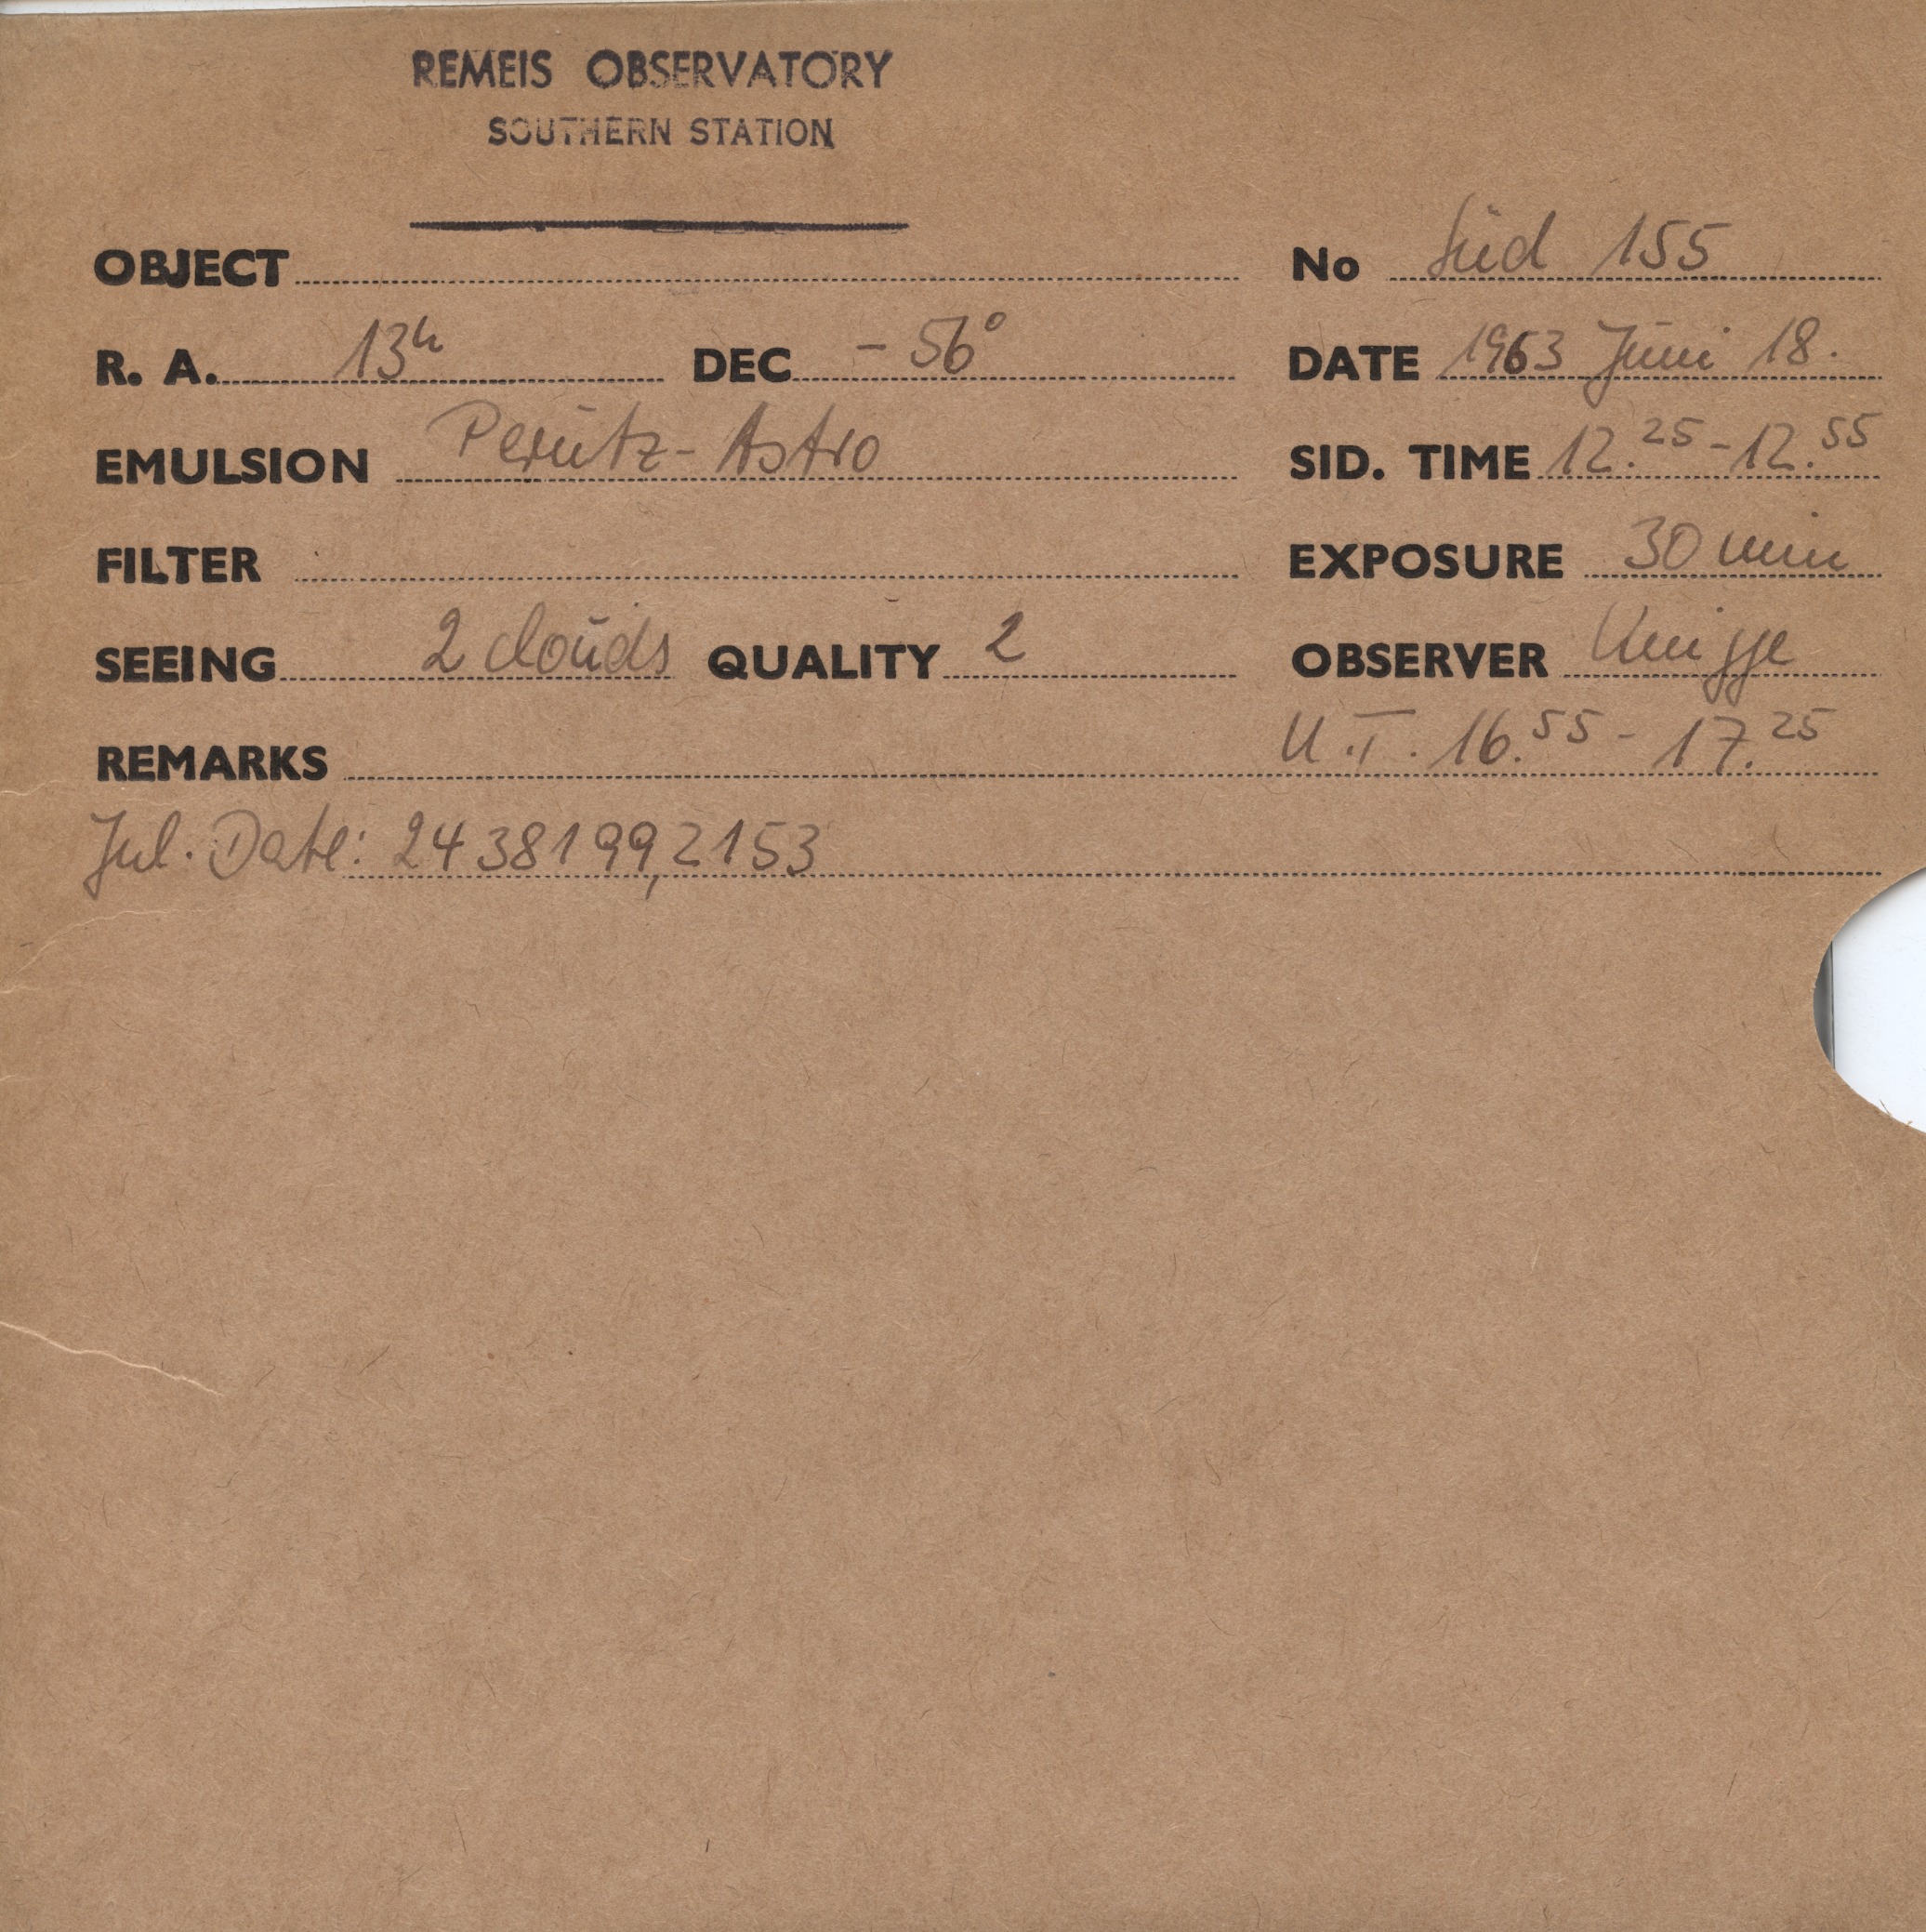 REMEIS OBSERVATORY
SOUTHERN STATION
OBJECT No Süd 155
R. A. 13h DEC - 56° DATE 1963 Juni 18.
EMULSION Perutz-Astro SID. TIME 12.25-12.55
FILTER EXPOSURE 30 min
SEEING 2 clouds QUALITY 2 OBSERVER Knigge
REMARKS U.T. 16.55 - 17.25
Jul. Date: 2438199,2153